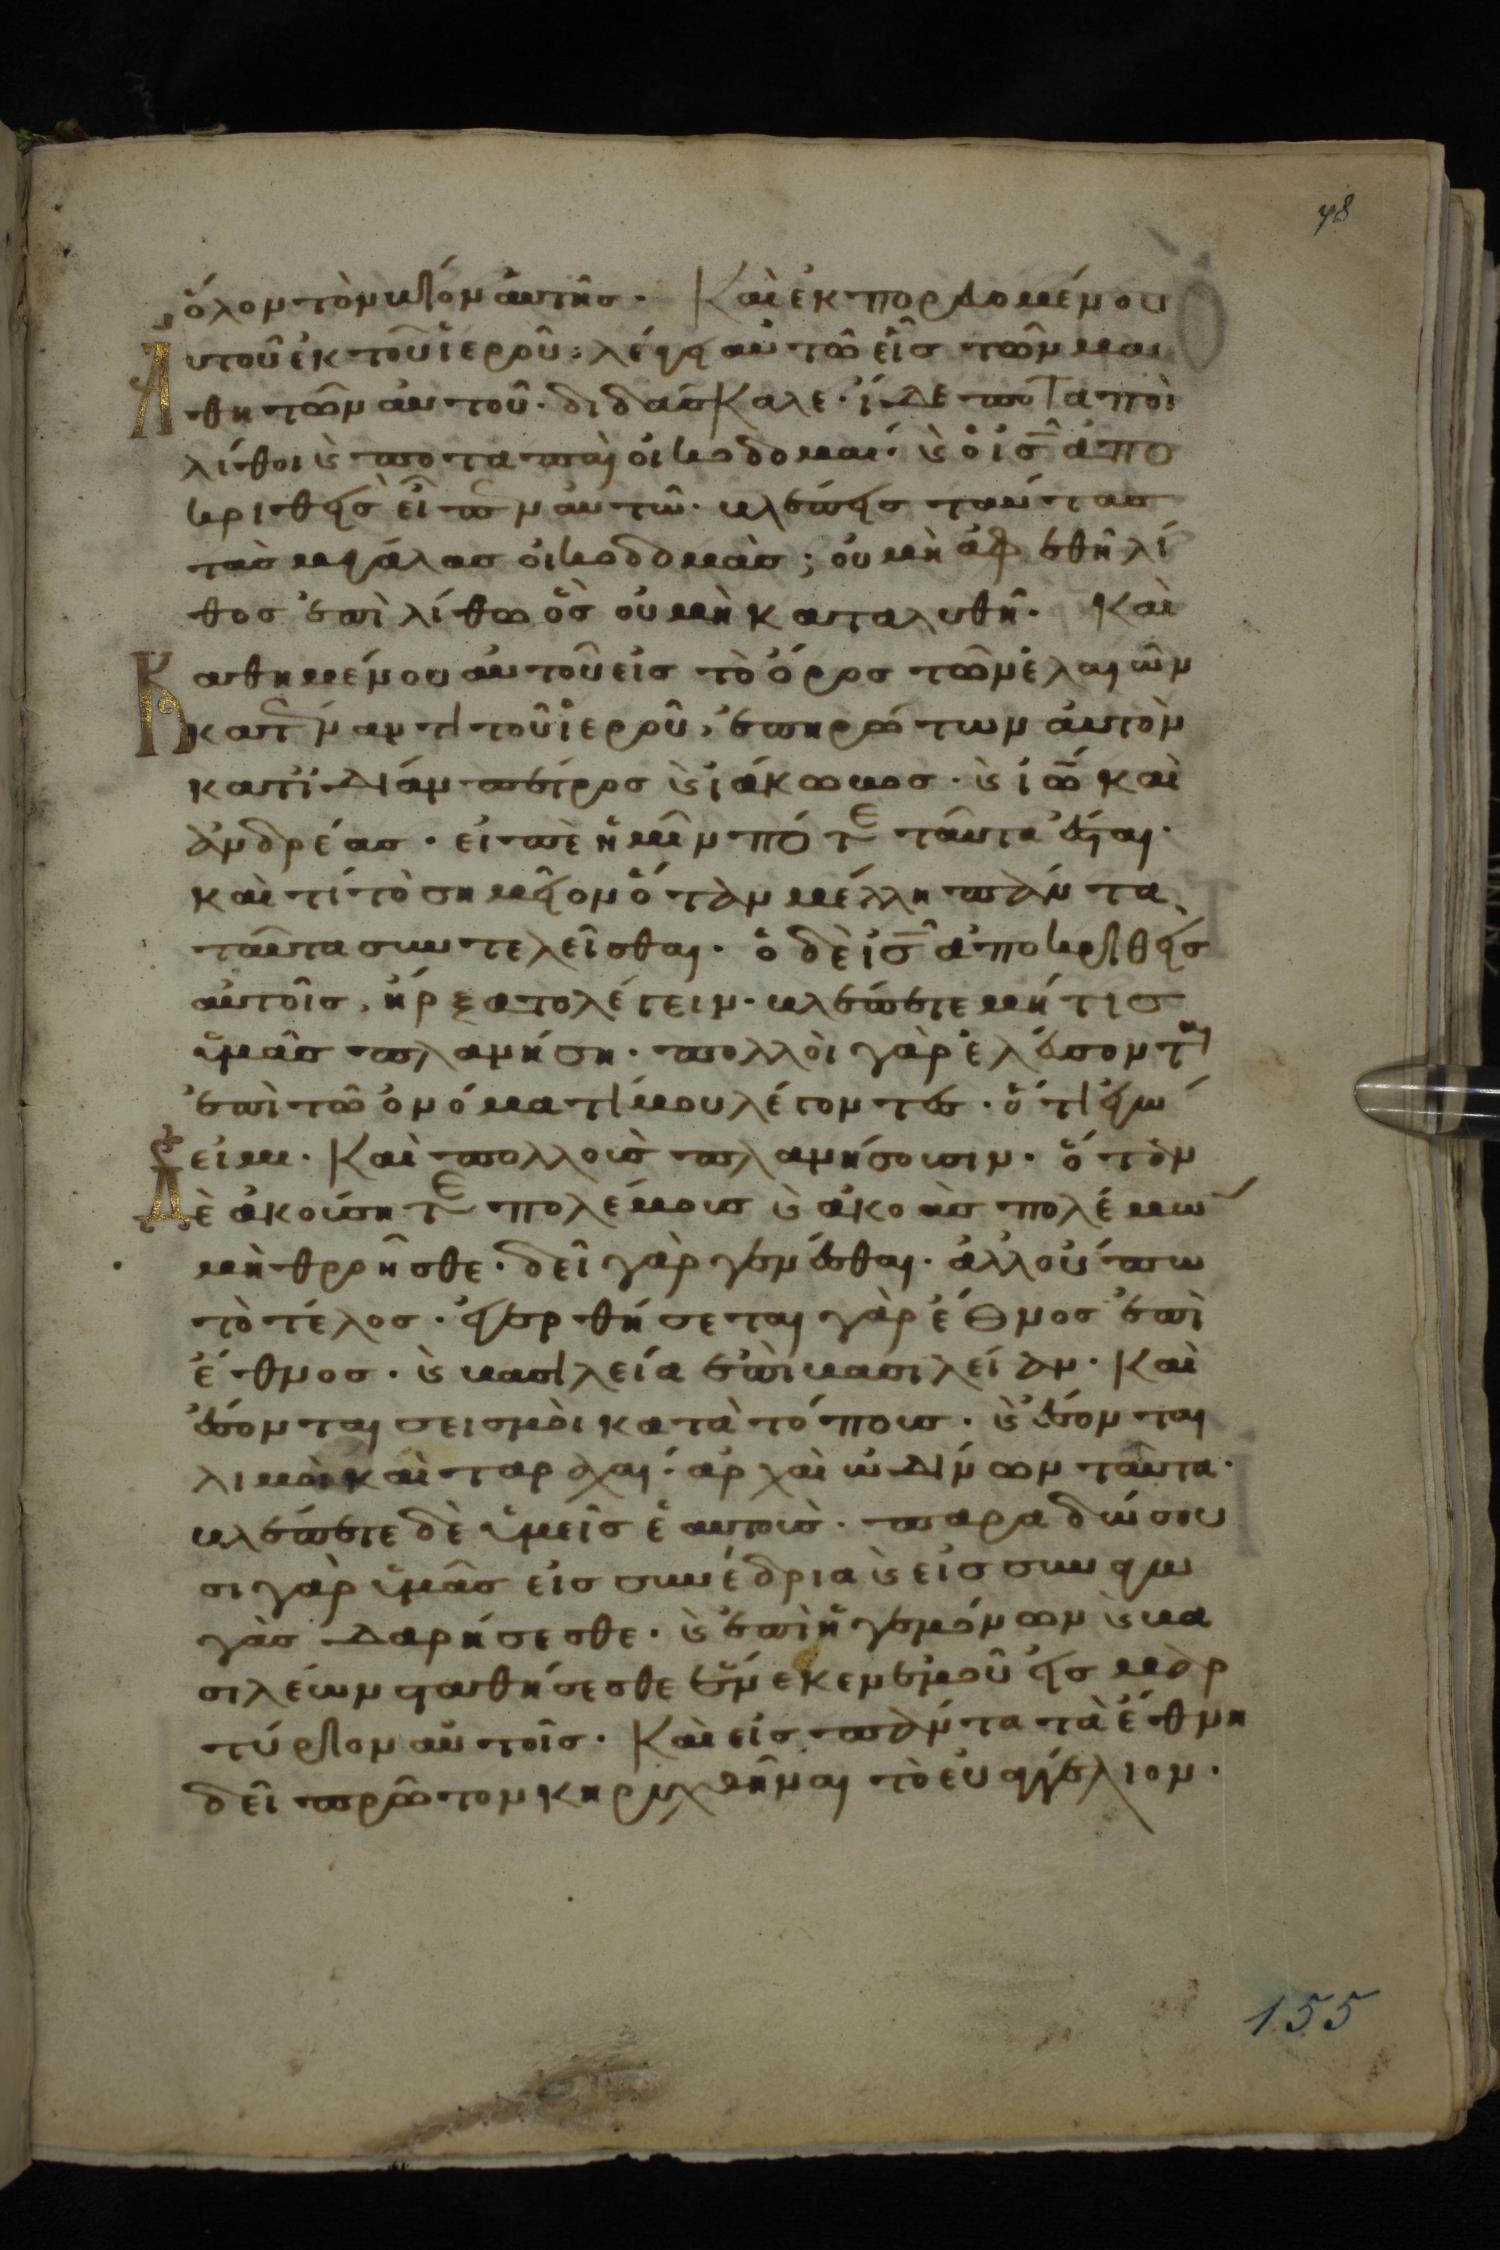 78
ὅλον τὸν βίον αὐτῆς. Καὶ ἐκπορευομένου
Αὐτοῦ ἐκ τοῦ ἱεροῦ, λέγει αὐτῶ εἷς τῶν μα
θητῶν αὐτοῦ. διδάσκαλε. ἴδε ποταποὶ
λίθοι ϗ ποταπαὶ οἰκοδομαί. ϗ ὁ ις ἀπο
κριθεὶς εἶπεν αὐτῶ. βλέπεις ταύτας
τὰς μεγάλας οἰκοδομάς; οὐ μὴ ἀφεθῆ λί
θος ἐπὶ λίθω ὃς οὐ μὴ καταλυθῆ. Καὶ
Καθημένου αὐτοῦ εἰς τὸ ὄρος τῶν ἐλαιῶν
κατέναντι τοῦ ἱεροῦ, ἐπηρώτων αὐτὸν
κατιδίαν πέτρος ϗ ἰάκωβος. ϗ ἰω καὶ
ἀνδρέας. εἰπὲ ἡμῖν πότε ταῦτα ἔσται.
καὶ τί τὸ σημεῖον ὅταν μέλλη πάντα
ταῦτα συντελεῖσθαι. ὁ δὲ ις ἀποκριθεὶς
αὐτοῖς, ἤρξατο λέγειν. βλέπετε μή τις
ὑμᾶς πλανήση. πολλοὶ γὰρ ἐλεύσονται
ἐπὶ τῶ ὀνόματί μου λέγοντες. ὅτι ἐγώ
εἰμι. Καὶ πολλοὺς πλανήσουσιν. ὅταν
Δὲ ἀκούσητε πολέμους ϗ ἀκοὰς πολέμω
μὴ θροῆσθε. δεῖ γὰρ γενέσθαι. ἀλλ οὔπω
τὸ τέλος. ἐγερθήσεται γὰρ ἔθνος ἐπὶ
ἔθνος. ϗ βασιλεία ἐπὶ βασιλείαν. Καὶ
ἔσονται σεισμοὶ κατὰ τόπους. ϗ ἔσονται
λιμοὶ καὶ ταραχαί. ἀρχαὶ ὠδίνων ταῦτα.
βλέπετε δὲ ὑμεῖς ἑαυτούς. παραδώσου
σι γὰρ ὑμᾶς εἰς συνέδρια ϗ εἰς συναγω
γὰς δαρήσεσθε. ϗ ἐπὶ ἡγεμόνων ϗ βα
σιλέων σταθήσεσθε ἕνεκεν ἐμοῦ εἰς μαρ
τύριον αὐτοῖς. Καὶ εἰς πάντα τὰ ἔθνη
δεῖ πρῶτον κηρυχθῆναι τὸ εὐαγγέλιον.
155